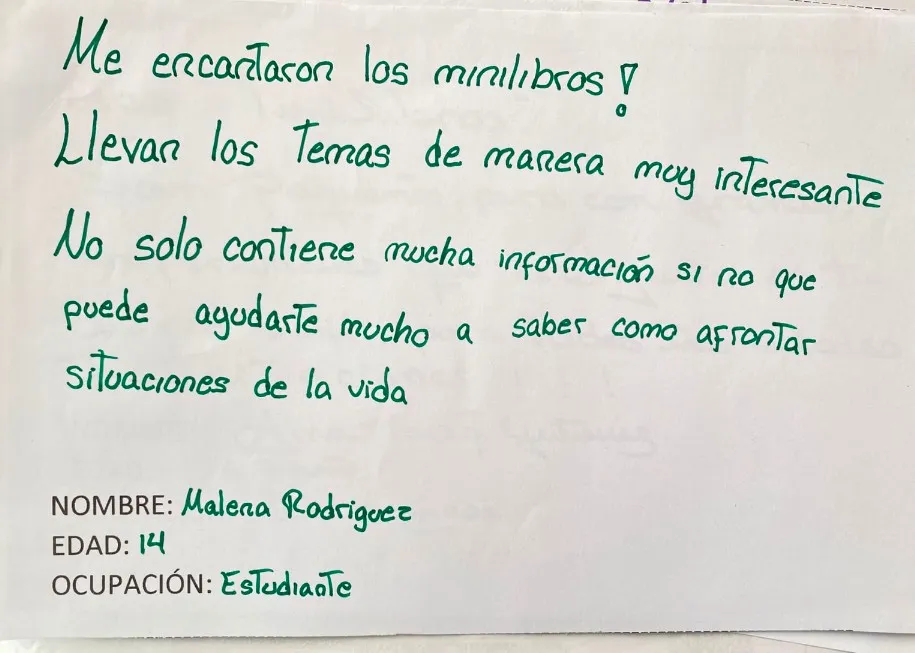 Me encantaron los minilibros!
Llevan los temas de manera muy interesante
No solo contiene mucha información si no que
puede ayudarte mucho a saber como afrontar
situaciones de la vida
NOMBRE: Malena Rodriguez
EDAD: 14
OCUPACIÓN: Estudiante